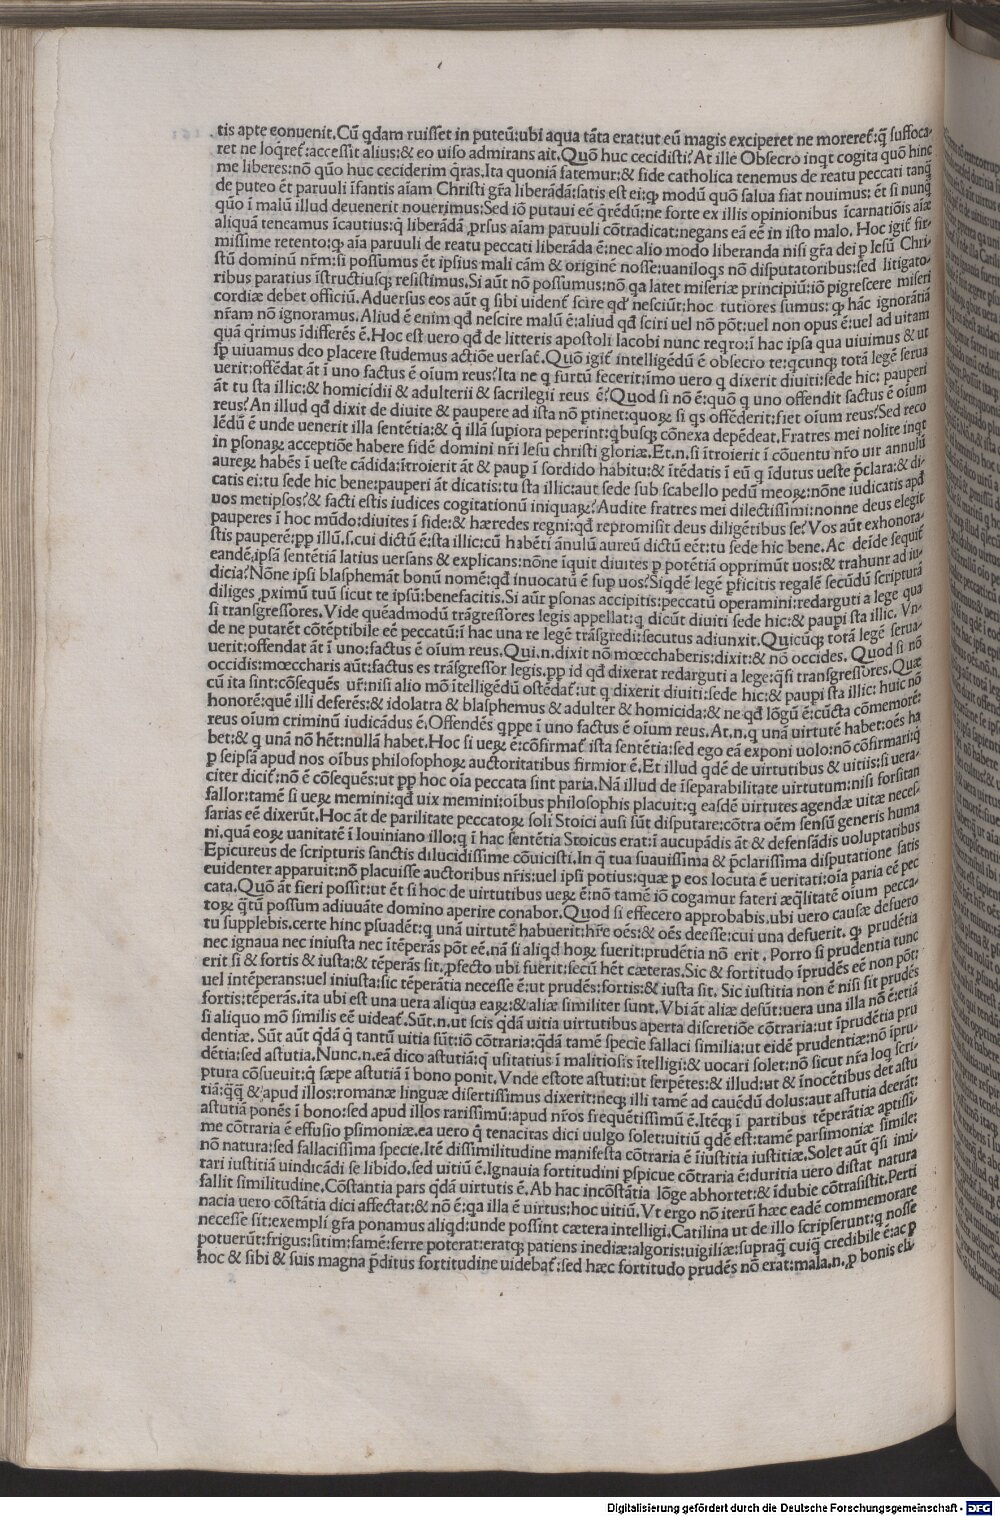 tis apte eonuenit. Cū qdam ruisset in puteū: ubi aqua tāta erat: ut eū magis exciperet ne moreret̄: q̄ suffoca-
ret ne loq̄ret̄: accessit alius: & eo uiso admirans ait. Quō huc cecidisti? At ille Obsecro inqt cogita quō hinc
me liberes: nō quo huc ceciderim q̄ras. Ita quoniā fatemur: & fide catholica tenemus de reatu peccati tanq̄
de puteo ēt paruuli īfantis aīam Christi gr̄a liberādā: satis est ei: ꝙ modū quō salua fiat nouimus: ēt si nunq̄
quō ī malū illud deuenerit nouerimus: Sed iō putaui eē q̄rēdū: ne forte ex illis opinionibus īcarnatiōis aīæ
aliquā teneamus īcautius: q̄ liberādā ꝓrsus aīam paruuli cōtradicat: negans eā eē in isto malo. Hoc igit̄ fir-
missime retento: ꝙ aīa paruuli de reatu peccati liberāda ē: nec alio modo liberanda nisi gr̄a dei p Iesū Chri-
stū dominū nr̄m: si possumus ēt ipsius mali cām & originē nosse: uaniloqs nō disputatoribus: sed litigato-
ribus paratius īstructiusq; resistimus. Si aūt nō possumus: nō qa latet miseriæ principiū: iō pigrescere miseri
cordiæ debet officiū. Aduersus eos aūt q sibi uident̄ scire qd̄ nesciūt: hoc tutiores sumus: ꝙ hāc ignorātiā
nr̄am nō ignoramus. Aliud ē enim qd̄ nescire malū ē: aliud qd̄ sciri uel nō pōt: uel non opus ē: uel ad uitam
quā q̄rimus īdifferēs ē. Hoc est uero qd̄ de litteris apostoli Iacobi nunc reqro: ī hac ipsa qua uiuimus & ut
sp̄ uiuamus deo placere studemus actiōe uersat̄. Quō igit̄ intelligēdū ē obsecro te: qcunq; totā legē serua
uerit: offēdat āt ī uno factus ē oīum reus? Ita ne q furtū fecerit: īmo uero q dixerit diuiti: sede hic: pauperi
āt tu sta illic: & homicidii & adulterii & sacrilegii reus ē? Quod si nō ē: quō q uno offendit factus ē oīum
reus? An illud qd̄ dixit de diuite & paupere ad ista nō ptinet: quoꝝ si qs offēderit: fiet oīum reus? Sed reco
lēdū ē unde uenerit illa sentētia: & q̄ illā supiora peperint: qbusq; cōnexa depēdeat. Fratres mei nolite inqt
in psonaꝝ acceptiōe habere fidē domini nr̄i Iesu christi gloriæ. Et. n. si ītroierit ī cōuentu nr̄o uir annulū
aureꝝ habēs ī ueste cādida: ītroierit āt & paup ī sordido habitu: & ītēdatis ī eū q īdutus ueste p̄clara: & di-
catis ei: tu sede hic bene: pauperi āt dicatis: tu sta illic: aut sede sub scabello pedū meoꝝ: nōne iudicatis apd̄
uos metipsos? & facti estis iudices cogitationū iniquaꝝ? Audite fratres mei dilectissimi: nonne deus elegit
pauperes ī hoc mūdo: diuites ī fide: & hæredes regni: qd̄ repromisit deus diligētibus se? Vos aūt exhonora-
stis pauperē: pp illū. s. cui dictū ē: sta illic: cū habēti ānulū aureū dictū eēt: tu sede hic bene. Ac deīde sequit̄
eandē ipsā sentētiā latius uersans & explicans: nōne iquit diuites p potētiā opprimūt uos: & trahunr ad iu-
dicia? Nōne ipsi blasphemāt bonū nomē: qd̄ inuocatū ē sup uos? Siqdē legē pficitis regalē secūdū scripturā
diliges ꝓximū tuū sicut te ipsū: benefacitis. Si aūr psonas accipitis: peccatū operamini: redarguti a lege qua
si transgressores. Vide quēadmodū trāgressores legis appellat: q dicūt diuiti sede hic: & paupi sta illic. Vn-
de ne putarēt cōtēptibile eē peccatū: ī hac una re legē trāsgredi: secutus adiunxit. Quicūq; totā legē serua-
uerit: offendat āt ī uno: factus ē oīum reus. Qui. n. dixit nō mœcchaberis: dixit: & nō occides. Quod si nō
occidis: mœccharis aūt: factus es trāsgressor legis. pp id qd̄ dixerat redarguti a lege: q̄si transgressores. Quæ
cū ita sint: cōsequēs ur̄: nisi alio mō ītelligēdū ostēdat̄: ut q dixerit diuiti: sede hic: & paupi sta illic: huic nō
honorē: quē illi deferēs: & idolatra & blasphemus & adulter & homicida: & ne qd̄ lōgū ē: cūcta cōmemorē:
reus oīum criminū iudicādus ē. Offendēs qppe ī uno factus ē oīum reus. At. n. q unā uirtutē habet: oēs ha
bet: & q unā nō hēt: nullā habet. Hoc si ueꝝ ē: cōfirmat̄ ista sentētia: sed ego eā exponi uolo: nō cōfirmari: q̄
p seipsā apud nos oībus philosophoꝝ auctoritatibus firmior ē. Et illud qdē de uirtutibus & uitiis: si uera-
citer dicit̄: nō ē cōsequēs: ut pp hoc oīa peccata sint paria. Nā illud de īseparabilitate uirtutum: nisi forsitan
fallor: tamē si ueꝝ memini: qd̄ uix memini: oībus philosophis placuit: q easdē uirtutes agendæ uitæ neces-
sarias eē dixerūt. Hoc āt de parilitate peccatoꝝ soli Stoici ausi sūt disputare: cōtra oēm sensū generis huma
ni. quā eoꝝ uanitatē ī Iouiniano illo: q ī hac sentētia Stoicus erat: ī aucupādis āt & defensādis uoluptatibus
Epicureus de scripturis sanctis dilucidissime cōuicisti. In q̄ tua suauissima & p̄clarissima disputatione satis
euidenter apparuit: nō placuisse auctoribus nr̄is: uel ipsi potius: quæ p eos locuta ē ueritati: oīa paria eē pec
cata. Quō āt fieri possit: ut ēt si hoc de uirtutibus ueꝝ ē: nō tamē iō cogamur fateri æq̄litatē oīum pecca-
toꝝ: q̄tū possum adiuuāte domino aperire conabor. Quod si effecero approbabis. ubi uero causæ defuero
tu supplebis. certe hinc psuadēt: q unā uirtutē habuerit: hr̄e oēs: & oēs deesse: cui una defuerit. ꝙ prudētia
nec ignaua nec iniusta nec ītēperās pōt eē. nā si aliqd hoꝝ fuerit: prudētia nō erit. Porro si prudentia tunc
erit si & fortis & iusta: & tēperās sit. ꝓfecto ubi fuerit: secū hēt cæteras. Sic & fortitudo īprudēs eē non pōt:
uel intēperans: uel iniusta: sic tēperātia necesse ē: ut prudēs: fortis: & iusta sit. Sic iustitia non ē nisi sit prudēs
fortis: tēperās. ita ubi est una uera aliqua eaꝝ: & aliæ similiter sunt. Vbi āt aliæ desūt: uera una illa nō ē: etiā
si aliquo mō similis eē uideat̄. Sūt. n. ut scis qdā uitia uirtutibus aperta discretiōe cōtraria: ut īprudētia pru
dentiæ. Sūt aūt qdā q̄ tantū uitia sūt: iō cōtraria: qdā tamē specie fallaci similia: ut eidē prudentiæ: nō īpru-
dētia: sed astutia. Nunc. n. eā dico astutiā: q usitatius ī malitiosis ītelligi: & uocari solet: nō sicut nr̄a loq̄ scri-
ptura cōsueuit: q̄ sæpe astutiā ī bono ponit. Vnde estote astuti: ut serpētes: & illud: ut & inocētibus det astu
tiā: q̄q̄ & apud illos: romanæ linguæ disertissimus dixerit: neq; illi tamē ad cauēdū dolus: aut astutia deerāt:
astutiā ponēs ī bono: sed apud illos rarissimū: apud nr̄os frequētissimū ē. Itēq; ī partibus tēperātiæ aptissi-
me cōtraria ē effusio psimoniæ. ea uero q̄ tenacitas dici uulgo solet: uitiū qdē est: tamē parsimoniæ simile:
nō natura: sed fallacissima specie. Itē dissimilitudine manifesta cōtraria ē īiustitia iustitiæ. Solet aūt q̄si imi-
tari iustitiā uindicādi se libido. sed uitiū ē. Ignauia fortitudini pspicue cōtraria ē: duritia uero distat natura
fallit similitudine. Cōstantia pars qdā uirtutis ē. Ab hac incōstātia lōge abhortet: & īdubie cōtrasistit. Perti
nacia uero cōstātia dici affectat: & nō ē: qa illa ē uirtus: hoc uitiū. Vt ergo nō iterū hæc eadē commemorare
necesse sit: exempli gr̄a ponamus aliqd: unde possint cætera intelligi. Catilina ut de illo scripserunt: q nosse
potuerūt: frigus: sitim: famē: ferre poterat: eratq; patiens inediæ: algoris: uigiliæ: supraq̄ cuiq̄ credibile ē: ac p
hoc & sibi & suis magna p̄ditus fortitudine uidebat̄: sed hæc fortitudo prudēs nō erat: mala. n. ꝓ bonis eli-
Digitalisierung gefördert durch die Deutsche Forschungsgemeinschaft - DFG